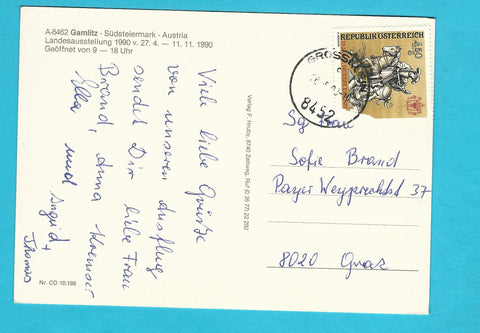 A-8462 Gamlitz - Südsteiermark - Austria
Landesausstellung 1990 v. 27. 4. — 11. 11. 1990
Geöffnet von 9 — 18 Uhr
Viele liebe Grüße
von unseren Ausflug
sendet Dir liebe Frau
Brand, Anna Kremser
Ella, und Ingrid
+
Thomas
Nr. CO 10.195
Verlag F. Hruby, 8740 Zeltweg, Ruf (0 35 77) 22 252
REPUBLIK ÖSTERREICH
8452
Sg Frau
Sofie Brand
Payer Weyprechtst 37
8020 Graz